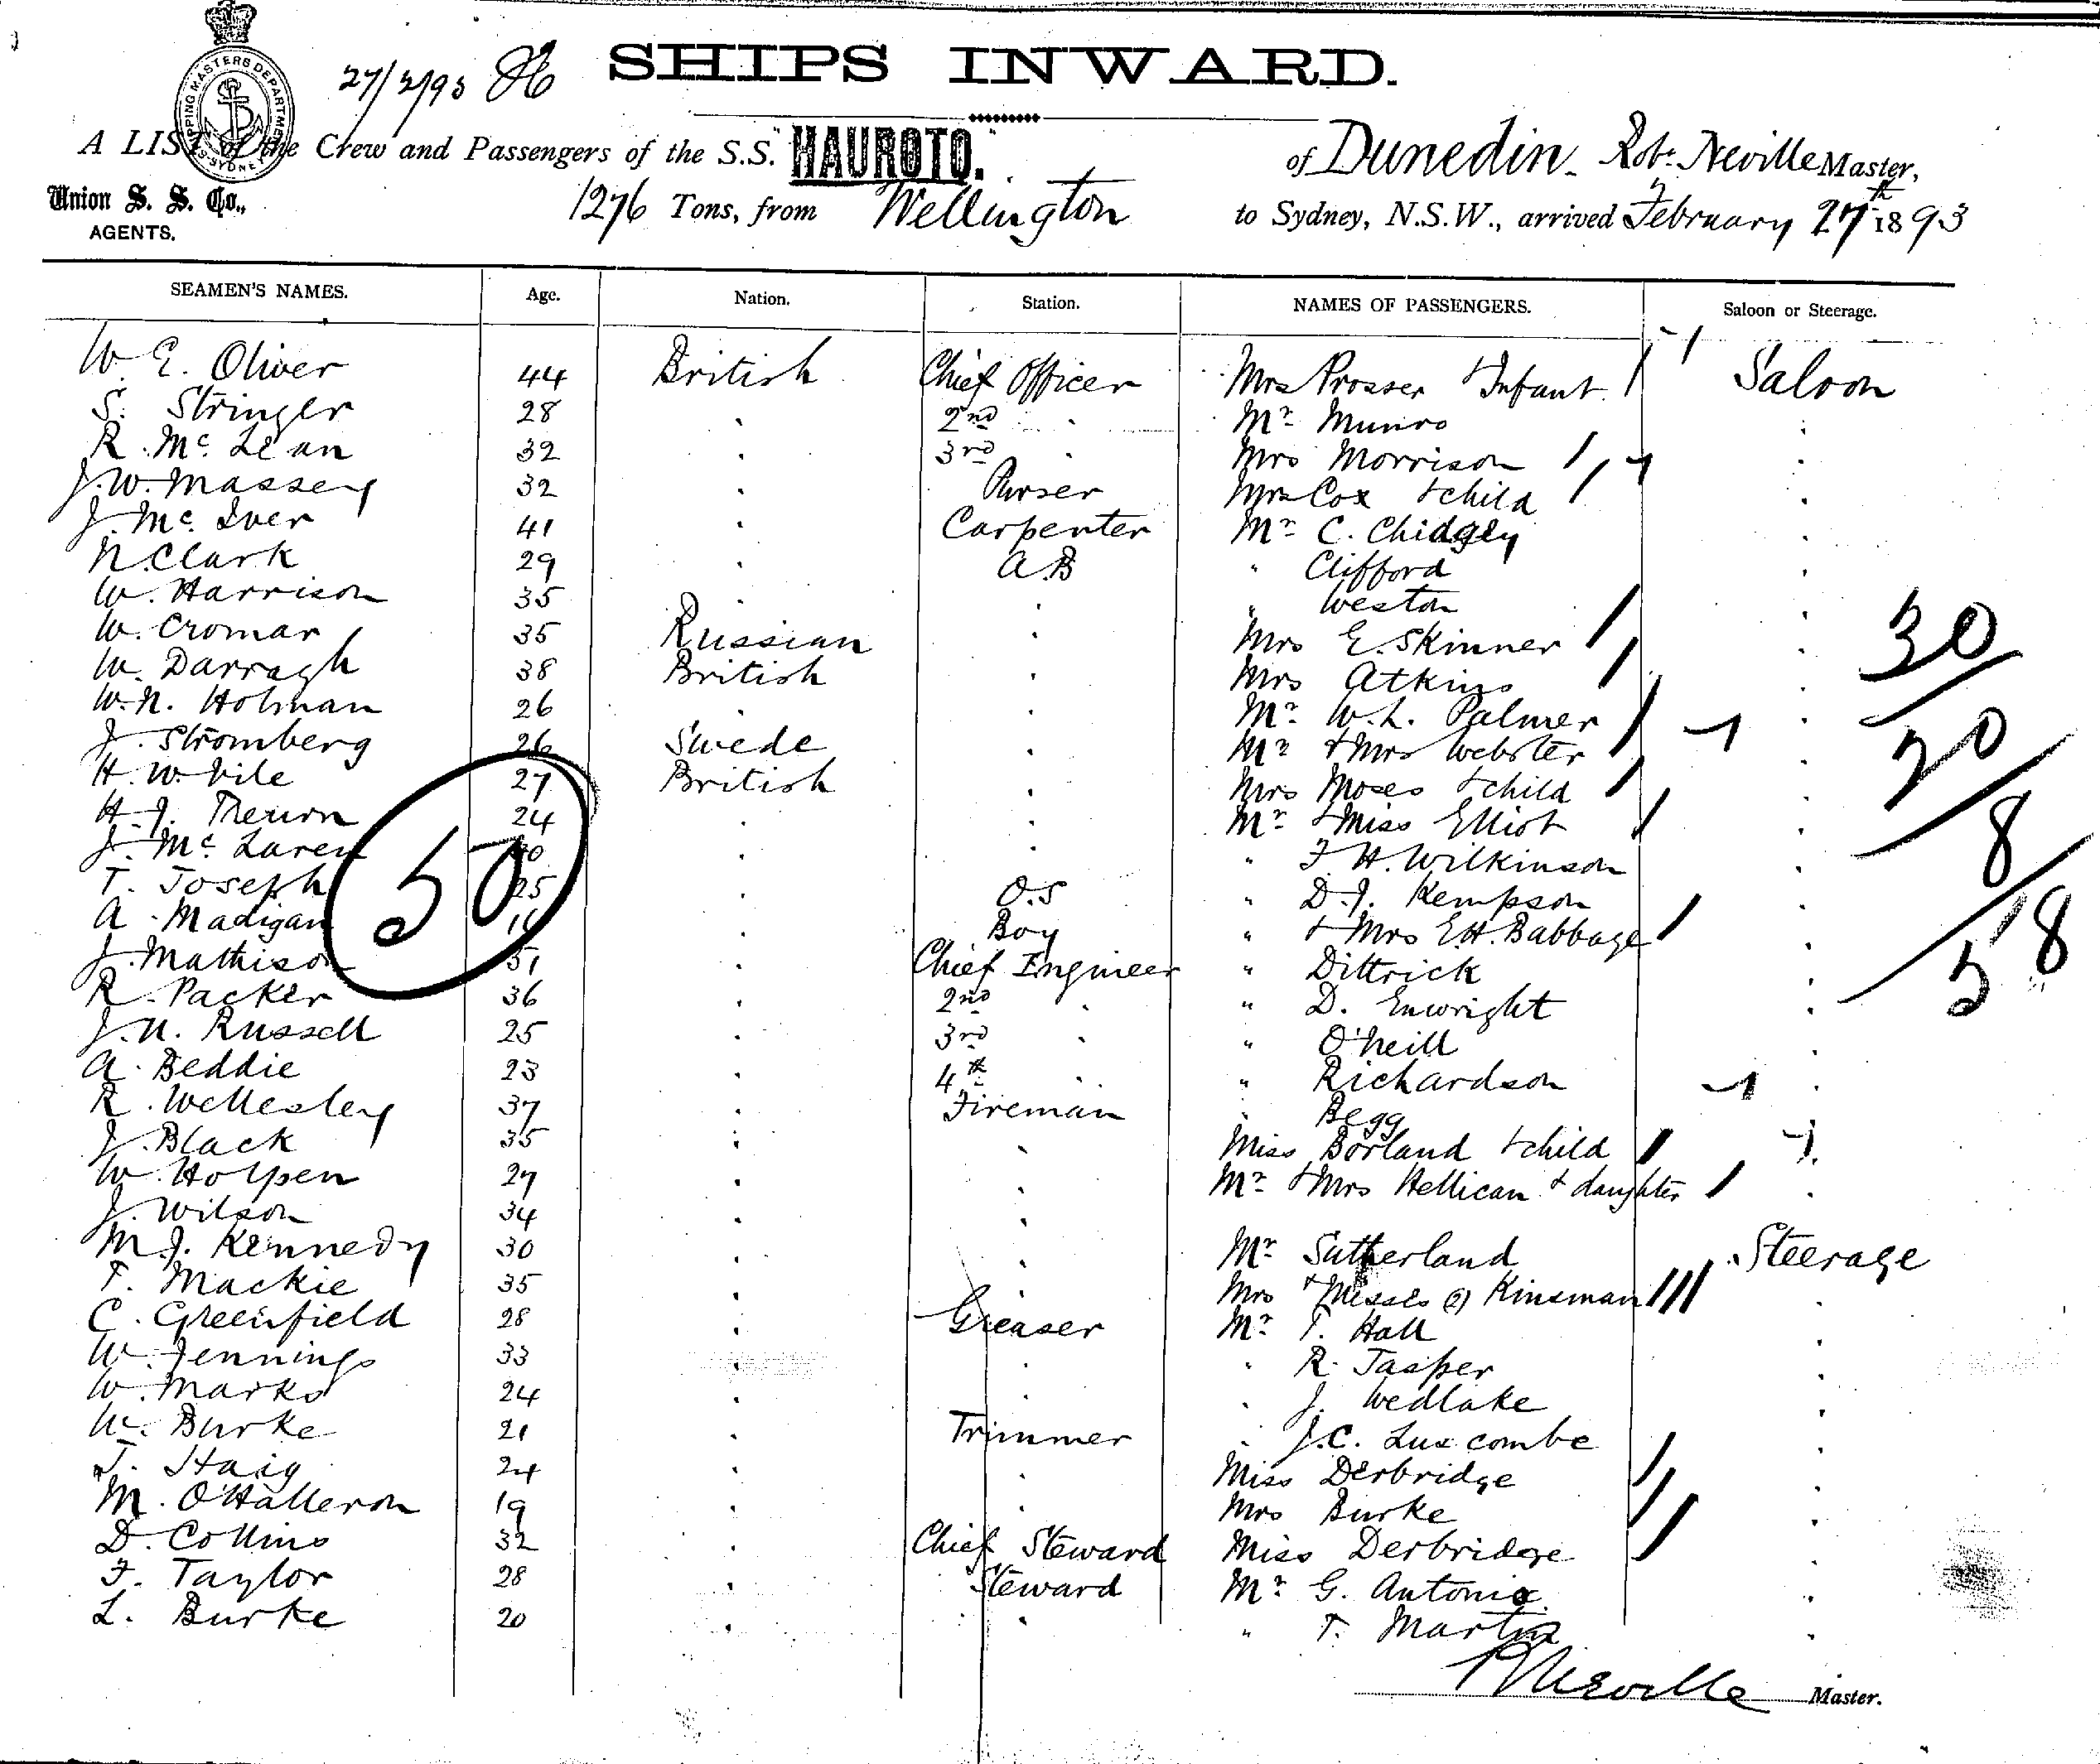 SHIPPING MASTERS DEPARTMENT SYDNEY
27/2/93
SHIPS INWARD.
A LIST of the Crew and Passengers of the S.S. "HAUROTO." of Dunedin. Robt. Neville Master,
Union S. S. Co., AGENTS. 1276 Tons, from Wellington to Sydney, N.S.W., arrived February 27th 1893
SEAMEN'S NAMES. Age. Nation. Station. NAMES OF PASSENGERS. Saloon or Steerage.
W. E. Oliver 44 British Chief Officer Mrs Prosser + Infant Saloon
S. Stringer 28 " 2nd " Mr Munro "
R. Mc Lean 32 " 3rd " Mrs Morrison "
J. W. Massey 32 " Purser Mrs Cox + child "
J. Mc Iver 41 " Carpenter Mr C. Chidgey "
N. Clark 29 " A.B " Clifford "
W. Harrison 35 " " " Weston "
W. Cromar 35 Russian " Mrs E. Skinner " 30
W. Darragh 38 British " Mrs Atkins "
W. N. Holman 26 " " Mr W. L. Palmer " 20
J. Stromberg 26 Swede " Mr + Mrs Webster "
H. W. Vile 27 British " Mrs Moses + child "
H. J. 24 " " Mr + Miss Elliot " 8
J. Mc Laren " " " F. H. Wilkinson "
T. Joseph 25 " O.S " D. J. Kempson "
50
A. Madigan " Boy " + Mrs E H. Babbage " 58
J. Mathison 51 " Chief Engineer " Dittrick "
R. Packer 36 " 2nd " " D. Enwright "
J. N. Russell 25 " 3rd " " O'Neill "
A. Beddie 23 " 4th " " Richardson "
R. Wellesley 37 " Fireman " Begg
J. Black 35 " " Miss Borland + child "
W. Holpen 27 " " Mr + Mrs Hellican + daughter "
J. Wilson 34 " "
M. J. Kennedy 30 " " Mr Sutherland Steerage
T. Mackie 35 " " Mrs + Misses (2) Kinsman "
C. Greenfield 28 " Greaser Mr T. Hall "
W. Jennings 33 " " " R. Jasper "
W. Marks 24 " " " J. Wedlake "
W. Burke 21 " Trimmer " J.C. Luscombe "
T. Haig 24 " " Miss Derbridge "
M. O'Halleron 19 " " Mrs Burke "
D. Collins 32 " Chief Steward Miss Derbridge "
F. Taylor 28 " Steward Mr G. Antonio "
L. Burke 20 " " " T. Martin "
R Neville Master.